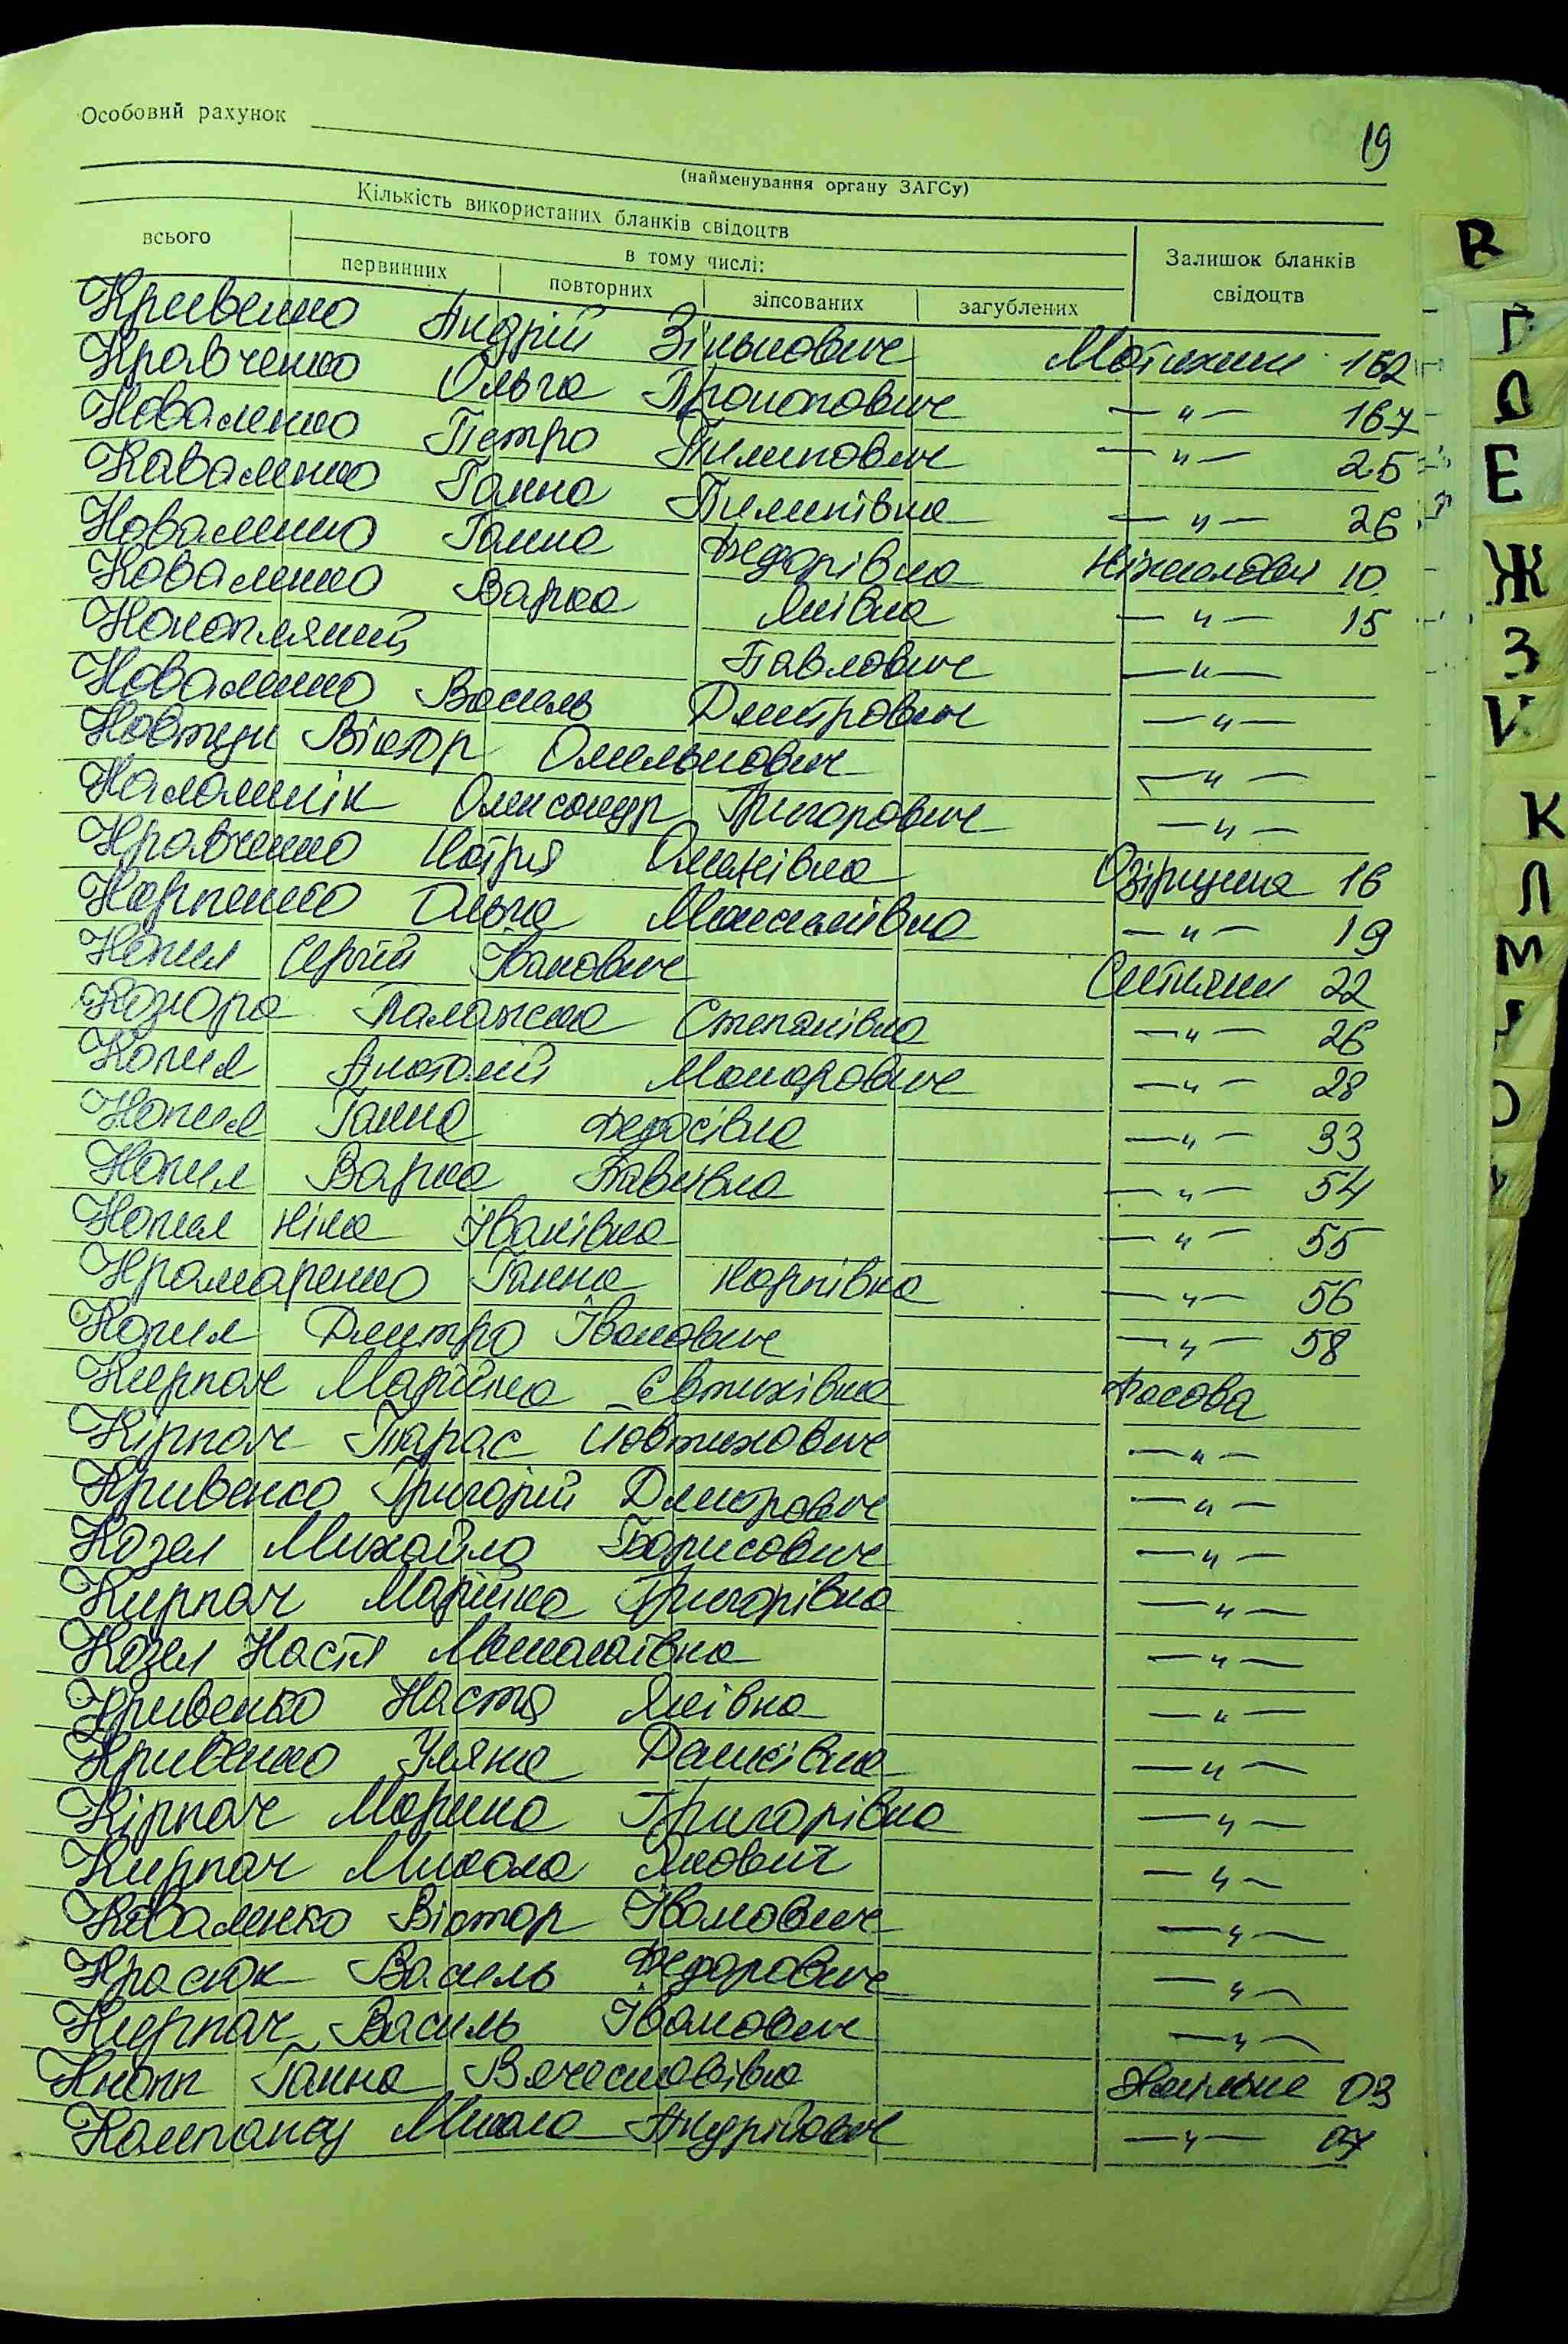 Особовий рахунок
19
(найменування органу ЗАГСу)
Кількість використаних бланків свідоцтв
всього
в тому числі:
Залишок бланків свідоцтв
первинних повторних зіпсованих загублених
Кривенко Андрій Зінькович Мотижин 162
Кравченко Ольга Прокопович —"— 167
Коваленко Петро Пилипович —"— 25
Каваленко Ганна Пилипівна —"— 26
Коваленко Ганна Федорівна Ніжиловичі 10
Коваленко Варка Яківна —"— 15
Конопляний Павлович —"—
Коваленко Василь Дмитрович —"—
Ковтун Віктор Омелькович —"—
Каламнік Олександр Григорович —"—
Кравченко Мотря Озірщина 16
Карпенко Ольга Максимівна —"— 19
Копил Сергій Іванович Ситняки 22
Палажка Степанівна —"— 26
Копил Анатолій Макарович —"— 28
Копил Ганна Федосівна —"— 33
Копил Варка Савівна —"— 54
Копил Ніна Іванівна —"— 55
Крамаренко Ганна Карпівна —"— 56
Копил Дмитро Іванович —"— 58
Кирпач Марійка Євтихівна Фасова
Кірпач Тарас Йовтихович —"—
Кривенко Григорій Дмитрович —"—
Козел Михайло Борисович —"—
Кирпач Марійка Григорівна —"—
Козел Настя —"—
Кривенко Настя Яківна —"—
Кривенко Уляна Данилівна —"—
Кірпач Марина Григорівна —"—
Кирпач Микола Якович —"—
Коваленко Віктор Іванович —"—
Красюк Василь Федорович —"—
Кирпач Василь Іванович —"—
Кнопп Ганна Вячеславівна 03
Компанєц Микола Андрійович —"— 07
В
Г
Д
Е
Ж
З
И
К
Л
М
О